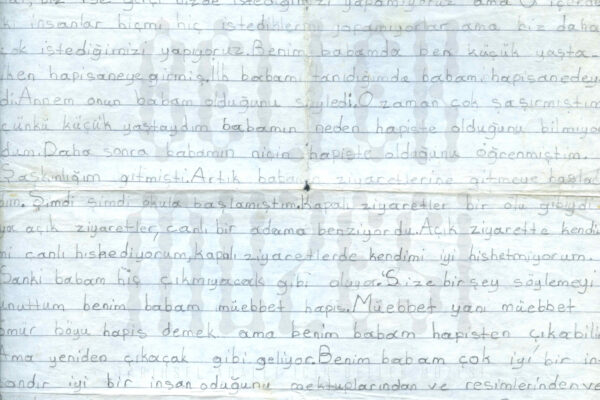 biz ise gelçi bizde istediğimizi yapamıyoruz ama O içerde
ki insanlar biçmi hiç istediklerini yapamıyorlar ama biz daha
çok istediğimizi yapıyoruz.Benim babamda ben küçük yasta-
ken hapisaneye girmiş.İlh babamı tanıdığımda babam hapisanedey
di.Annem onun babam olduğunu söyledi.O zaman çok şaşırmıştım
çünkü küçük yastaydım babamın neden hapiste olduğunu bilmiyo
dum.Daha sonra babamın niçin hapiste olduğunu öğrenmiştim.
Şaşkınlığım gitmişti.Artık babamın ziyaretlerine gitmeye başlad
Şimdi şimdi okula başlamıştım.Kapalı ziyaretler bir ölü gibiydi
ya açık ziyaretler, canlı bir adama benziyordu.Açık ziyarette kendi
mi canlı hishediyorum,kapalı ziyaretlerde kendimi iyi hishetmiyorum.
Sanki babam hiç çıkmıyacak gibi oluyor.Size birşey söylemeyi
unuttum benim babam müebbet hapis.Müebbet yani müebbet
ömür böyu hapis demek ama benim babam hapisten çıkabili
Ama yeniden çıkacak gibi geliyor.Benim babam çok iyi bir in
sandır iyi bir insan oduğunu mektuplarından ve resimlerinden ve